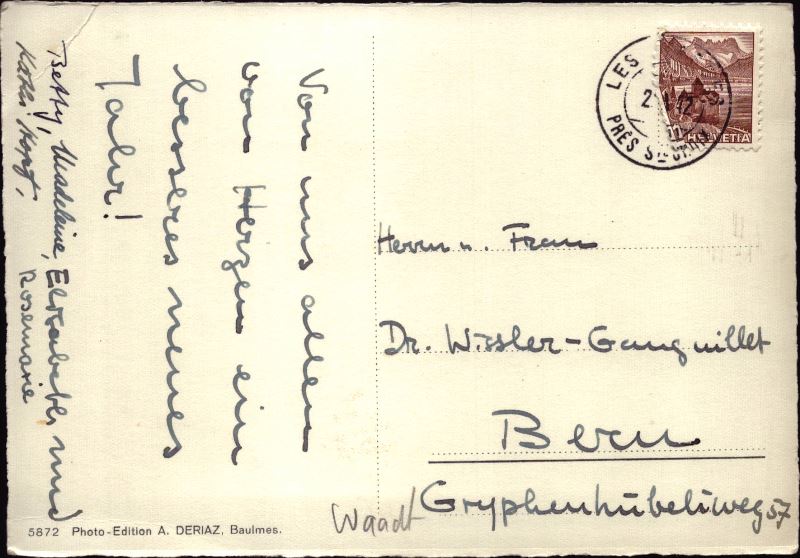 Von uns allen
von Herzen ein
besseres neues
Jahr!
Betty, Madeleine, Elisabeth und
Rosemarie
Herrn u. Frau
Dr. Wissler-Ganguillet
Bern
Gryphenhübeliweg 57
Waadt
LES
PRÈS STE
HELVETIA
5872 Photo-Edition A. DERIAZ, Baulmes.